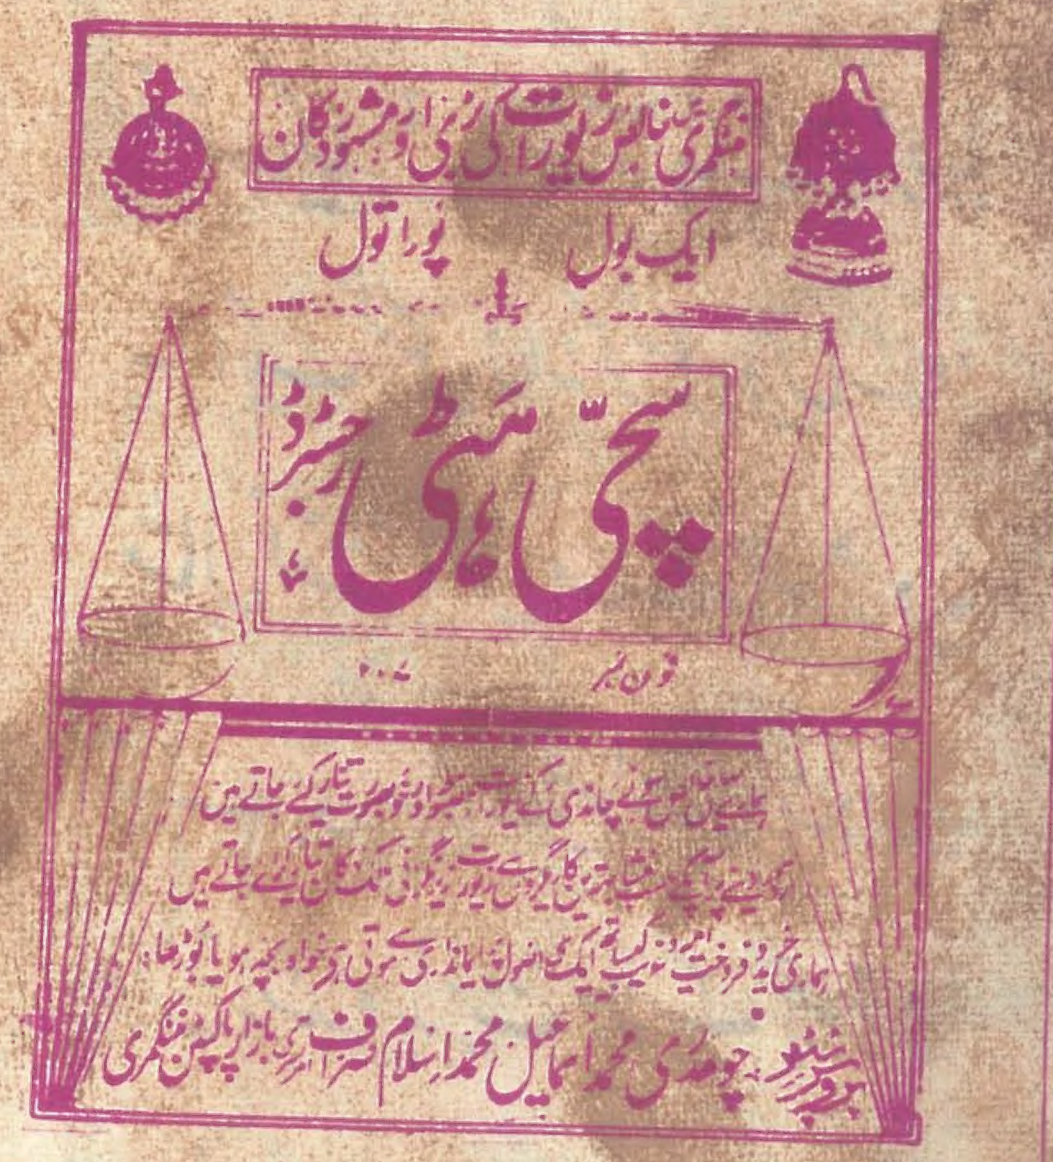 منٹگمری میں خالص زیورات کی بڑی اور مشہور دکان
ایک بول پورا تول
سچی ہٹی رجسٹرڈ
فون نمبر
ہمارے ہاں خالص سونے چاندی کے زیورات مضبوط اور خوبصورت تیار کیے جاتے ہیں
آرڈر دینے پر آپکے حسب منشا بہترین کاریگروں سے زیورات
ہماری خرید و فروخت امیر و غریب کیساتھ ایک ہی اصول ایمانداری سے ہوتی ہے خواہ بچہ ہو یا بوڑھا
پروپرائیٹرز چوہدری محمد اسماعیل محمد اسلام صراف امرتسری بازار پاکپتن منٹگمری